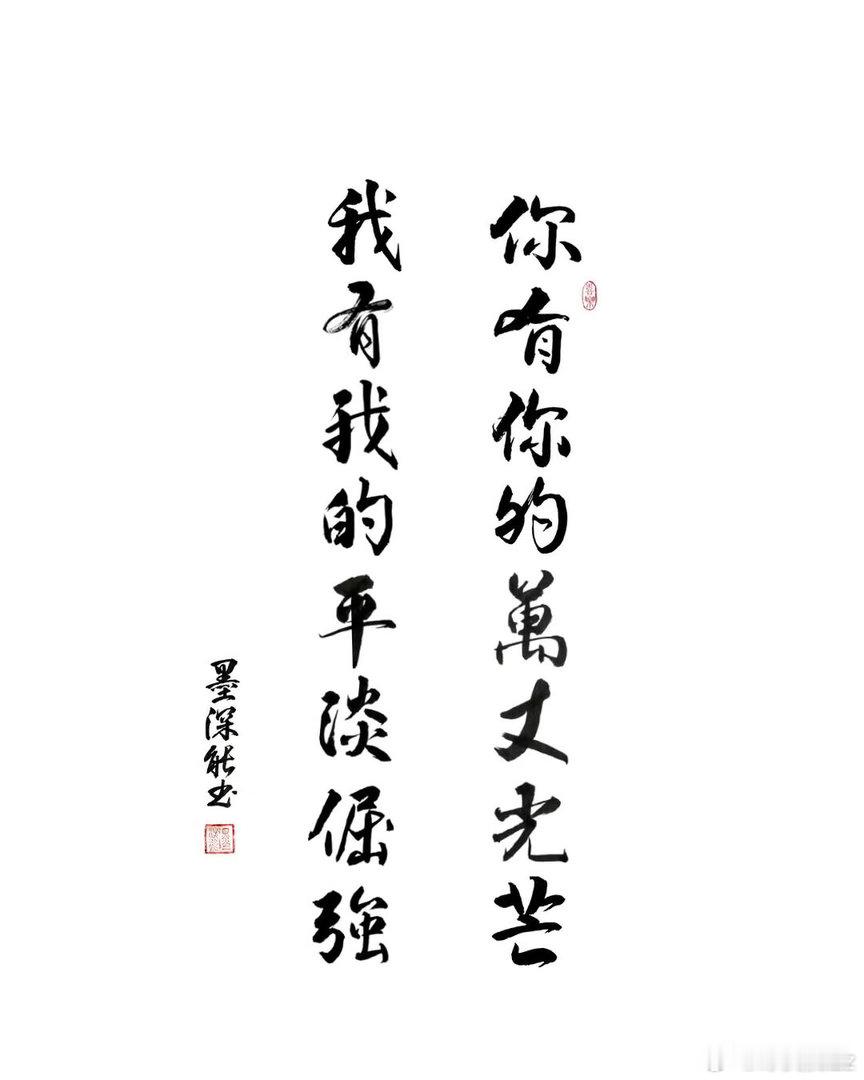 你有你的萬丈光芒
我有我的平淡倔強
墨深能书